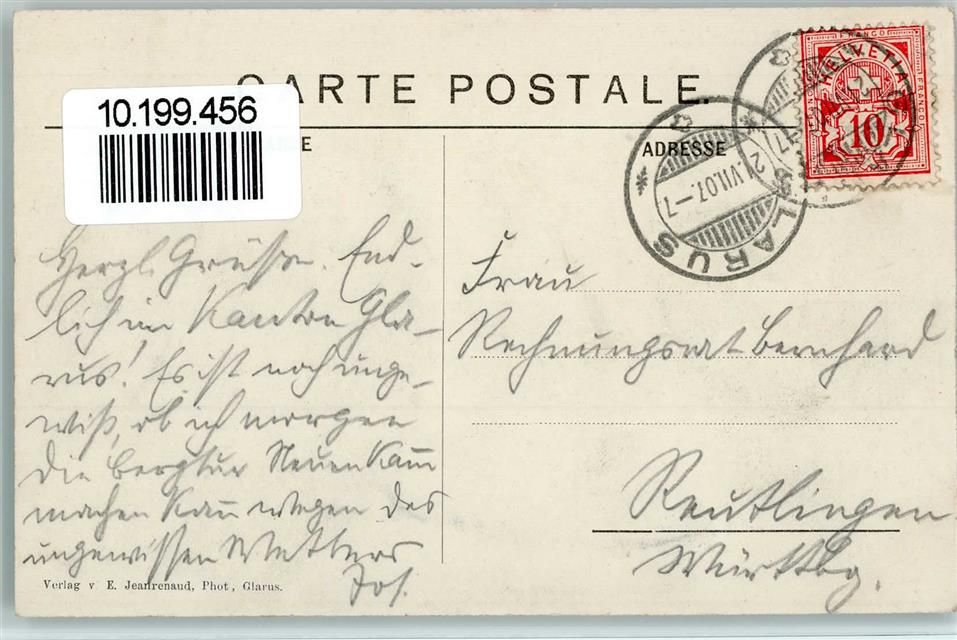 CARTE POSTALE.
10.199.456
ADRESSE
HELVETIA
FRANCO
FRANCO
10
GLARUS
21.VII.07.–7
Herzl. Grüße. End-
lich im Kanton Gla-
rus! Es ist noch unge-
wiß, ob ich morgen
die Bergtur Neuenkam̅
machen kan̅ wegen des
ungewissen Wetters
Jos.
Frau
Rechnungsrat Bernhard
Reutlingen
Württbg.
Verlag v E. Jeanrenaud, Phot, Glarus.